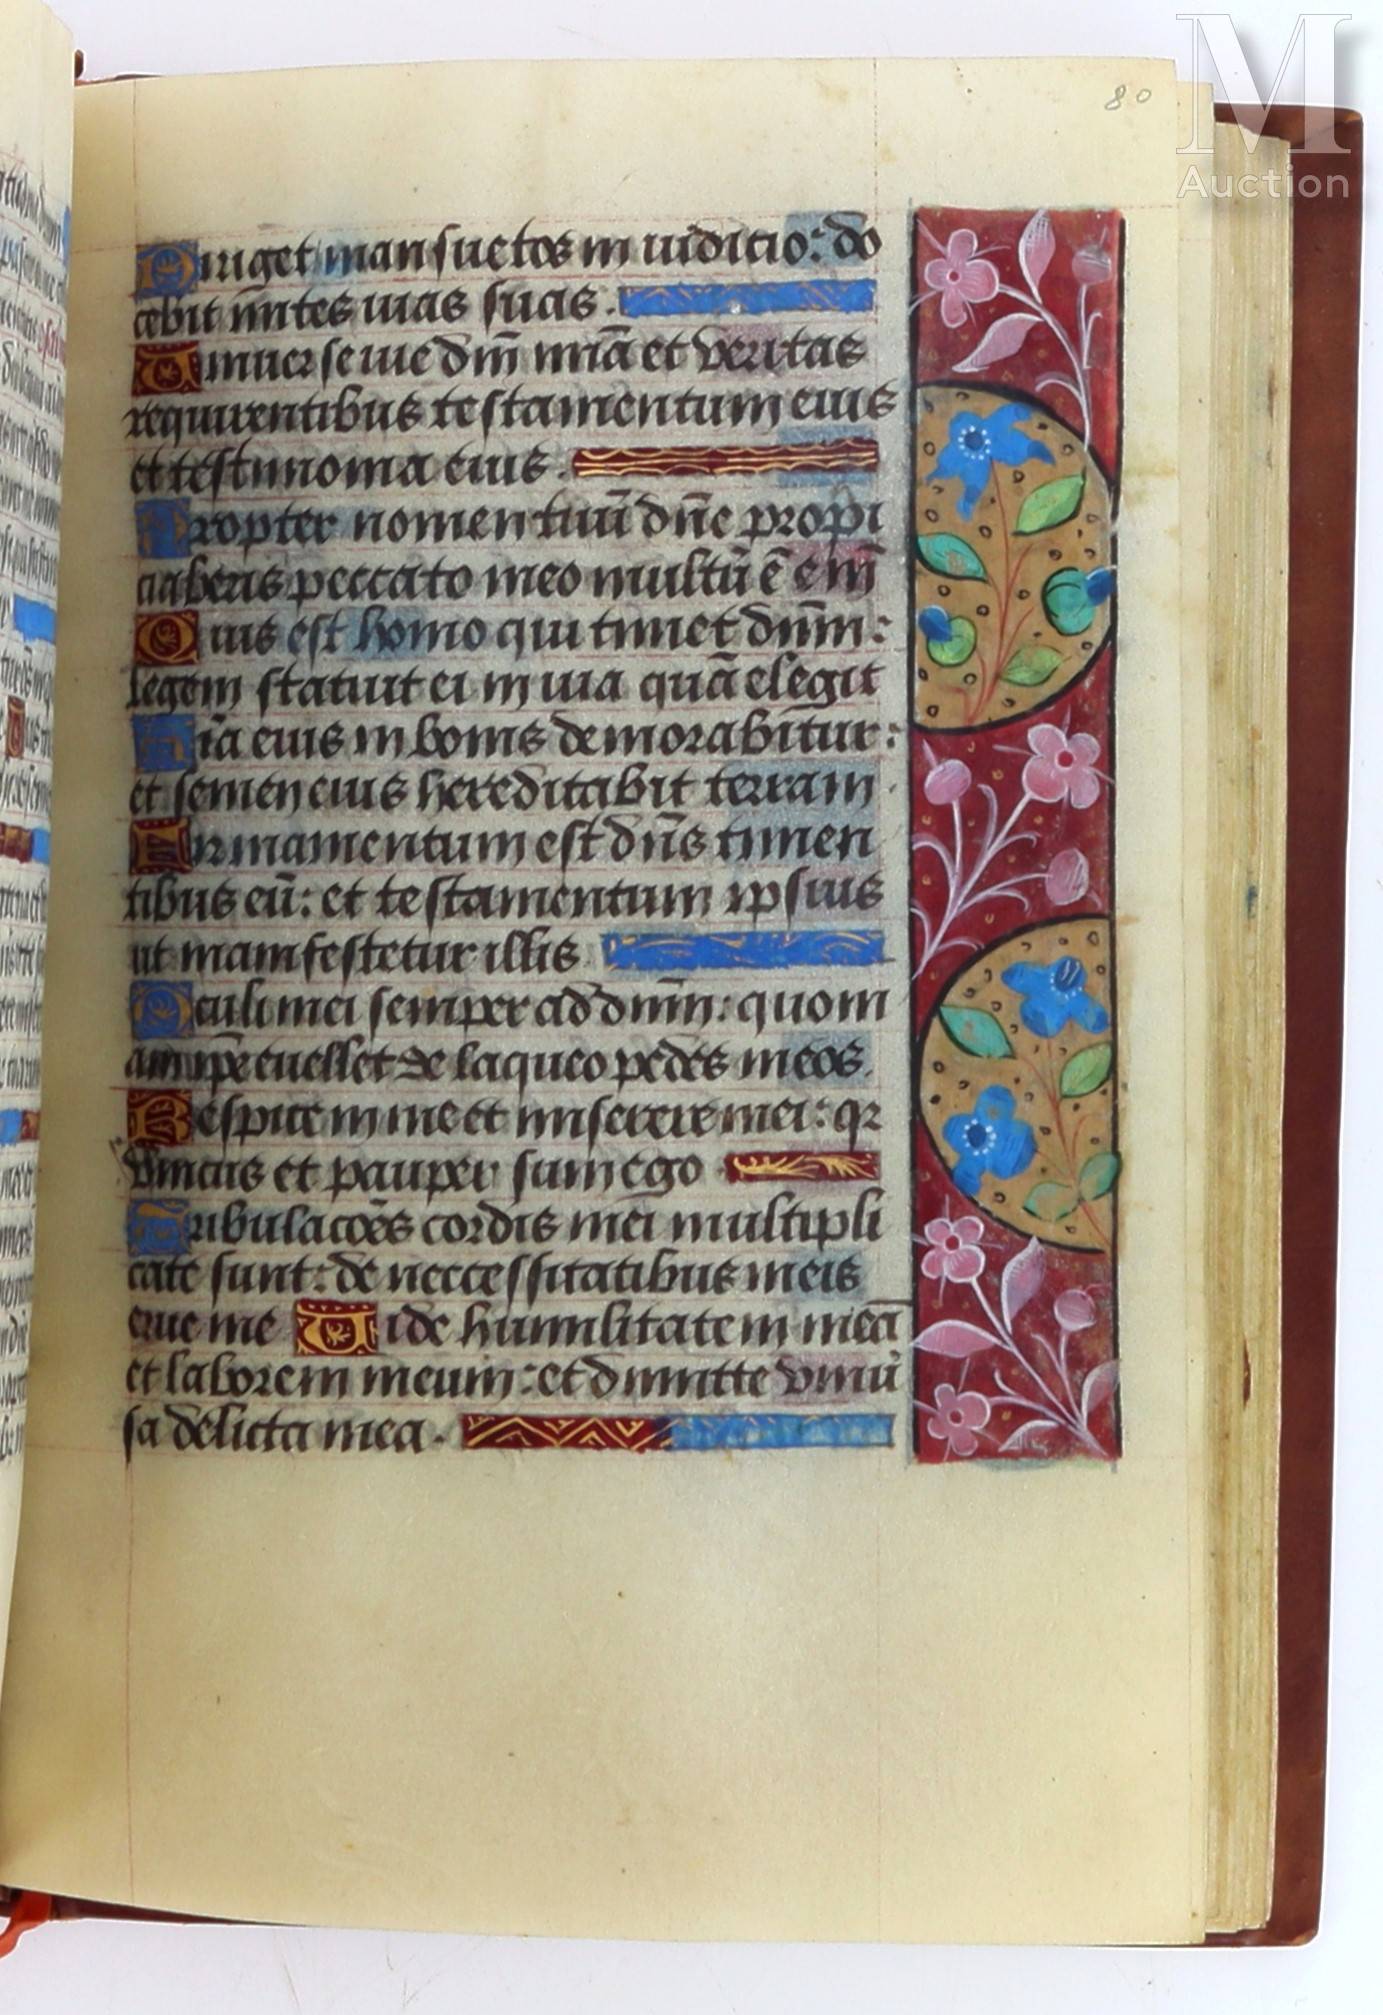 80
M
Auction
Diriget mansuetos in iudicio: do
cebit mites uias suas.
Uniuerse uie dñi mĩa et veritas
requirentibus testamentum eius
et testimonia eius.
Propter nomen tuũ dñe propi
ciaberis peccato meo multũ ẽ em̃
Quis est homo qui timet dñm:
legem statuit ei in uia quã elegit
Aĩa eius in bonis demorabitur:
et semen eius hereditabit terram.
Firmamentum est dñs timen
tibus eũ: et testamentum ipsius
ut manifestetur illis
Oculi mei semper ad dñm: quoni
am ip̃e euellet de laqueo pedes meos.
Respice in me et miserere mei: qr
vnicus et pauper sum ego
Tribulacões cordis mei multipli
cate sunt: de neccessitatibus meis
erue me Uide humilitatem meã
et laborem meum: et dimitte vniũ
sa delicta mea.